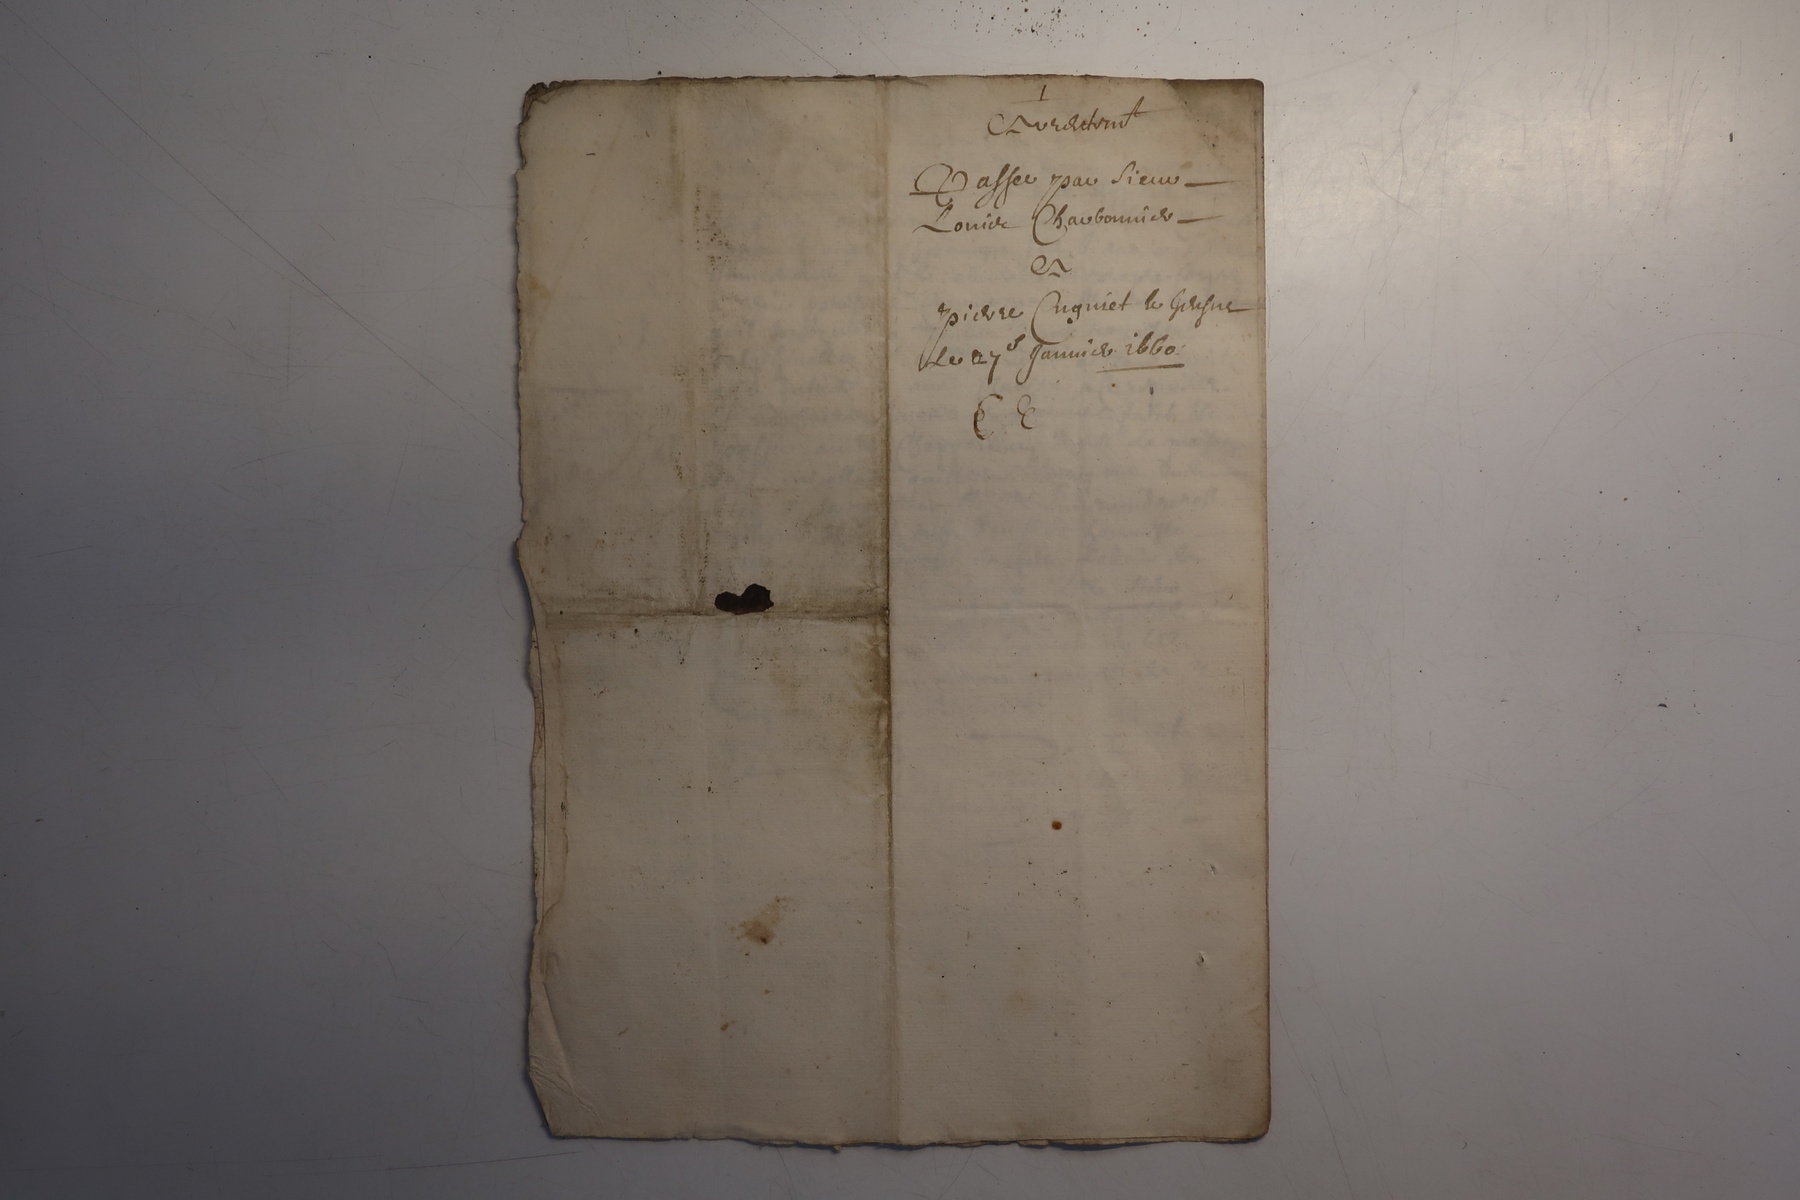 1
Arrestemt
Passer par Sieur
Louis Charbonnier
A
pierre Cugniet le Jeusne
Le 27e Januier 1660
C C